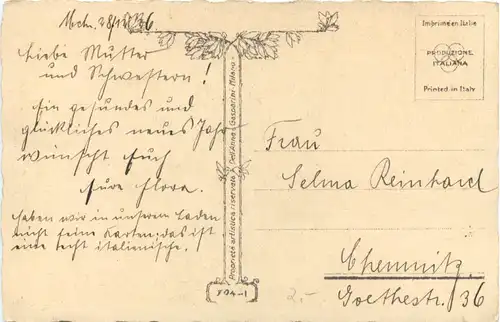 Mch. 28/12 26
Liebe Mutter
und Schwestern!
Ein gesundes und
glückliches neues Jahr
wünscht Euch
Eure Flora.
Haben wir in unserem Laden
nicht feine Karten; das ist
eine echt italienische.
Proprietà artistica riservata Dell'Anna & Gasparini - Milano
504-1
Imprimé en Italie
PRODUZIONE
ITALIANA
Printed in Italy
Frau
Selma Reinhard
Chemnitz
Goethestr. 36
2.-